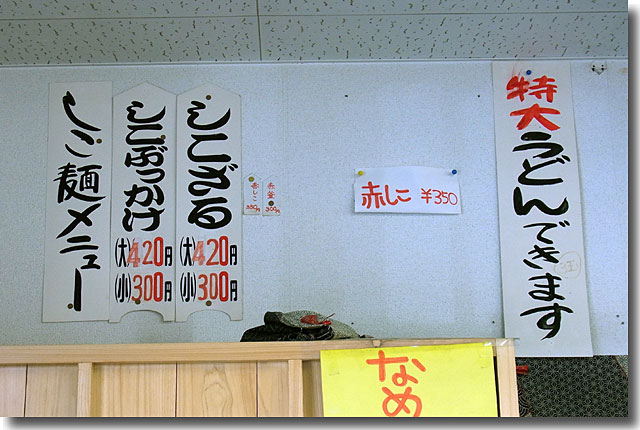 特大うどんできます
赤しこ ¥350
赤釜
300円
赤しこ
350円
しこざる
(大)420円
(小)300円
しこぶっかけ
(大)420円
(小)300円
しこ麺メニュー
なめ